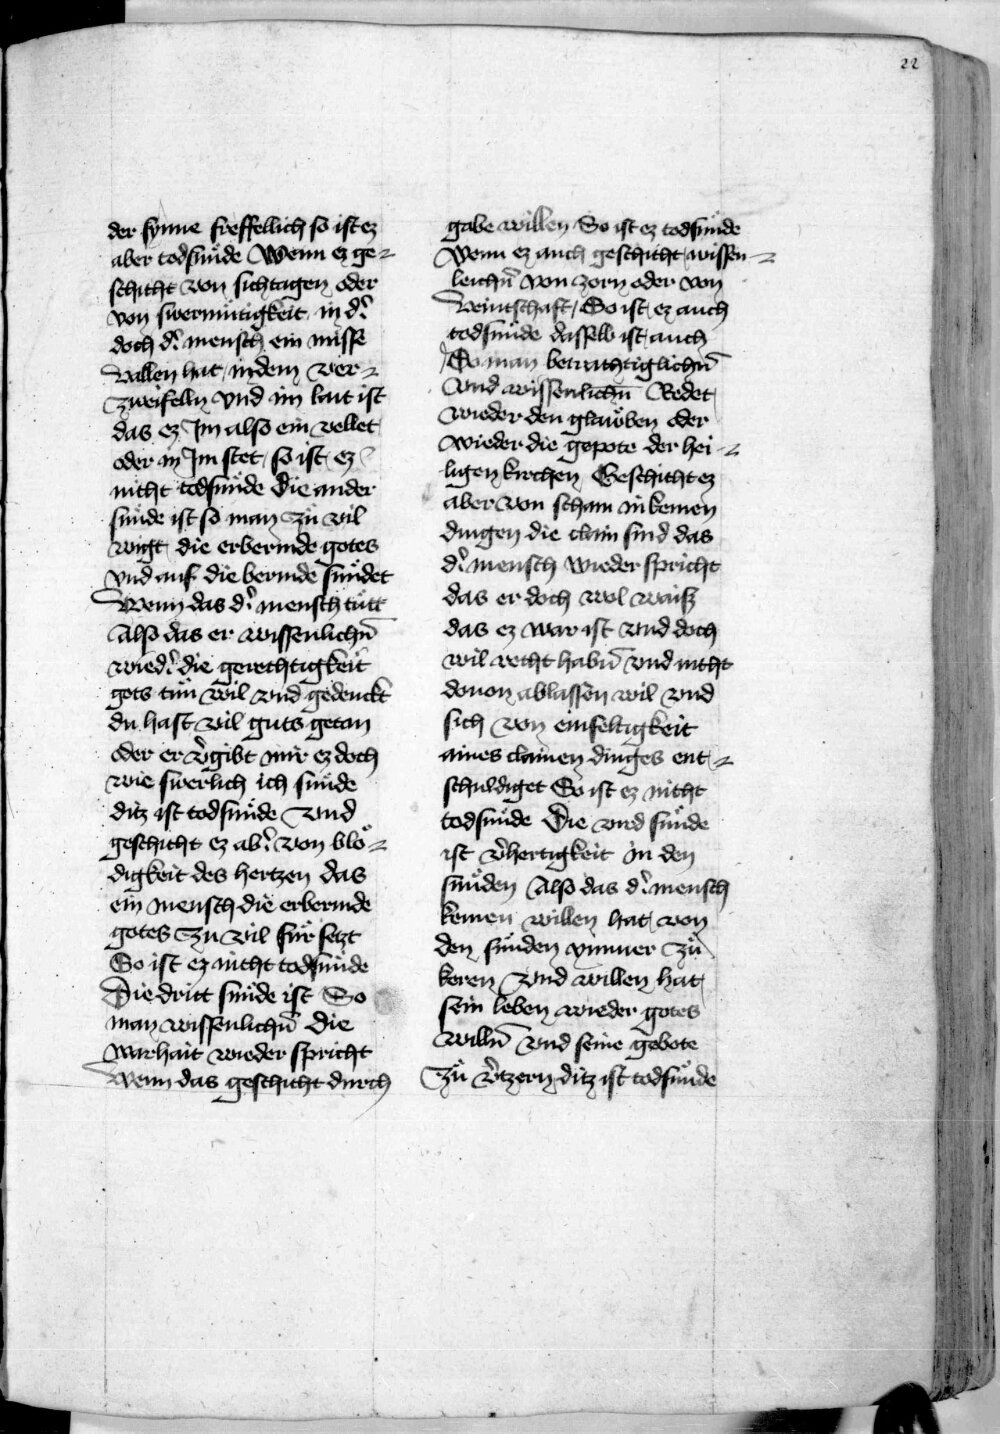 22
der synne freffellich so ist ez
aber todsünde Wenn ez ge-
schicht von sichtagen oder
von swermütigkeit in d̉
doch d̉ mensch ein misse
vallen hat indem ver-
zweifelln vnd im lait ist
das ez Im also ein vellet
oder in Im stet so ist ez
nicht todsünde Die ander
sünde ist so man zü vil
wigt die erbermde gotes
vnd auf die bermde sündet
Wenn das d̉ mensch tütt
Also das er wissenlichn̄
wied̉ die gerechtigkeit
gots tün wil vnd gedenckt
du hast vil guts getan
oder er v̉gibt mir ez doch
wie swerlich ich sünde
ditz ist todsünde Vnd
geschicht ez ab̉ von blö-
digkeit des hertzen das
ein mensch die erbermde
gotes zu vil für setzt
So ist ez nicht todsünde
Die dritt sünde ist So
man wissenlichn̄ die
warhait wieder spricht
Wenn das geschicht durch
gabe willen So ist ez todsünde
Wenn ez auch geschicht wissen-
leichn̄ von zorn oder von
Veintschaft So ist ez auch
todsünde dasselb ist auch
So man betrachtiglichn̄
Vnd wissenlichn̄ Redet
wieder den glauben oder
wieder die gepote der hei-
ligen kirchen Geschicht ez
aber von scham in kemen
dingen die clain sind das
d̉ mensch wieder spricht
das er doch wol waisz
das ez war ist vnd doch
wil recht habn̄ vnd nicht
douon ablassen wil vnd
sich von einfeltigkeit
aines clainen dinges ent-
schuldiget So ist ez nicht
todsünde Die vird sünde
ist v̉hertigkeit in den
sünden Also das d̉ mensch
kemen willen hat von
den sünden ymmer zü
keren Vnd willen hat
sein leben wieder gotes
willn̄ Vnd seine gebote
Zü v̉tzern ditz ist todsünde